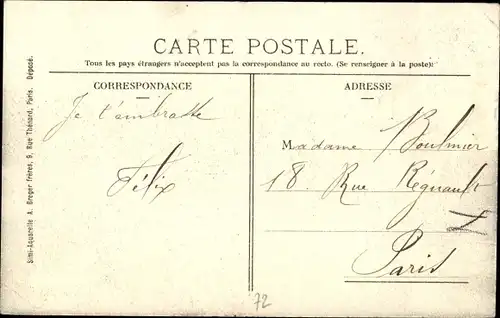 CARTE POSTALE.
Tous les pays étrangers n'acceptent pas la correspondance au recto. (Se renseigner à la poste)
CORRESPONDANCE
Je t'embrasse
Félix
ADRESSE
Madame Boulmier
18 Rue Régnault
Paris
Simi-Aquarelle A. Breger frères, 9, Rue Thénard, Paris. Déposé.
72